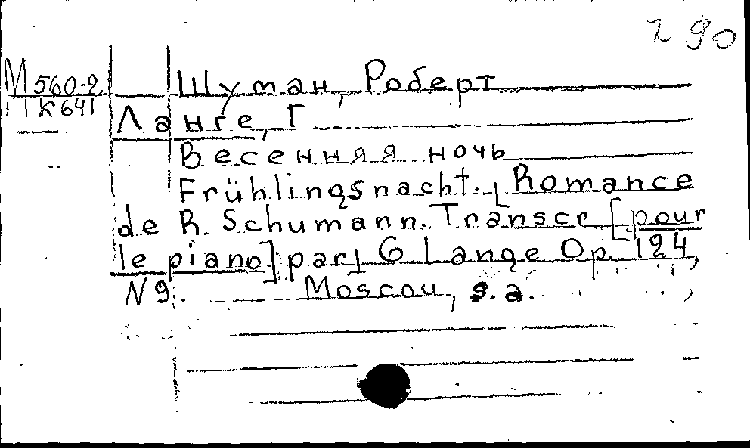 290
М 560-2
К 641
Шуман, Роберт
Ланге, Г
Весенняя ночь
Frühlingsnacht. [Romance
de R. Schumann. Transcr [pour
le piano] par] G Lange Op. 124,
N 9. Moscou, s.a.